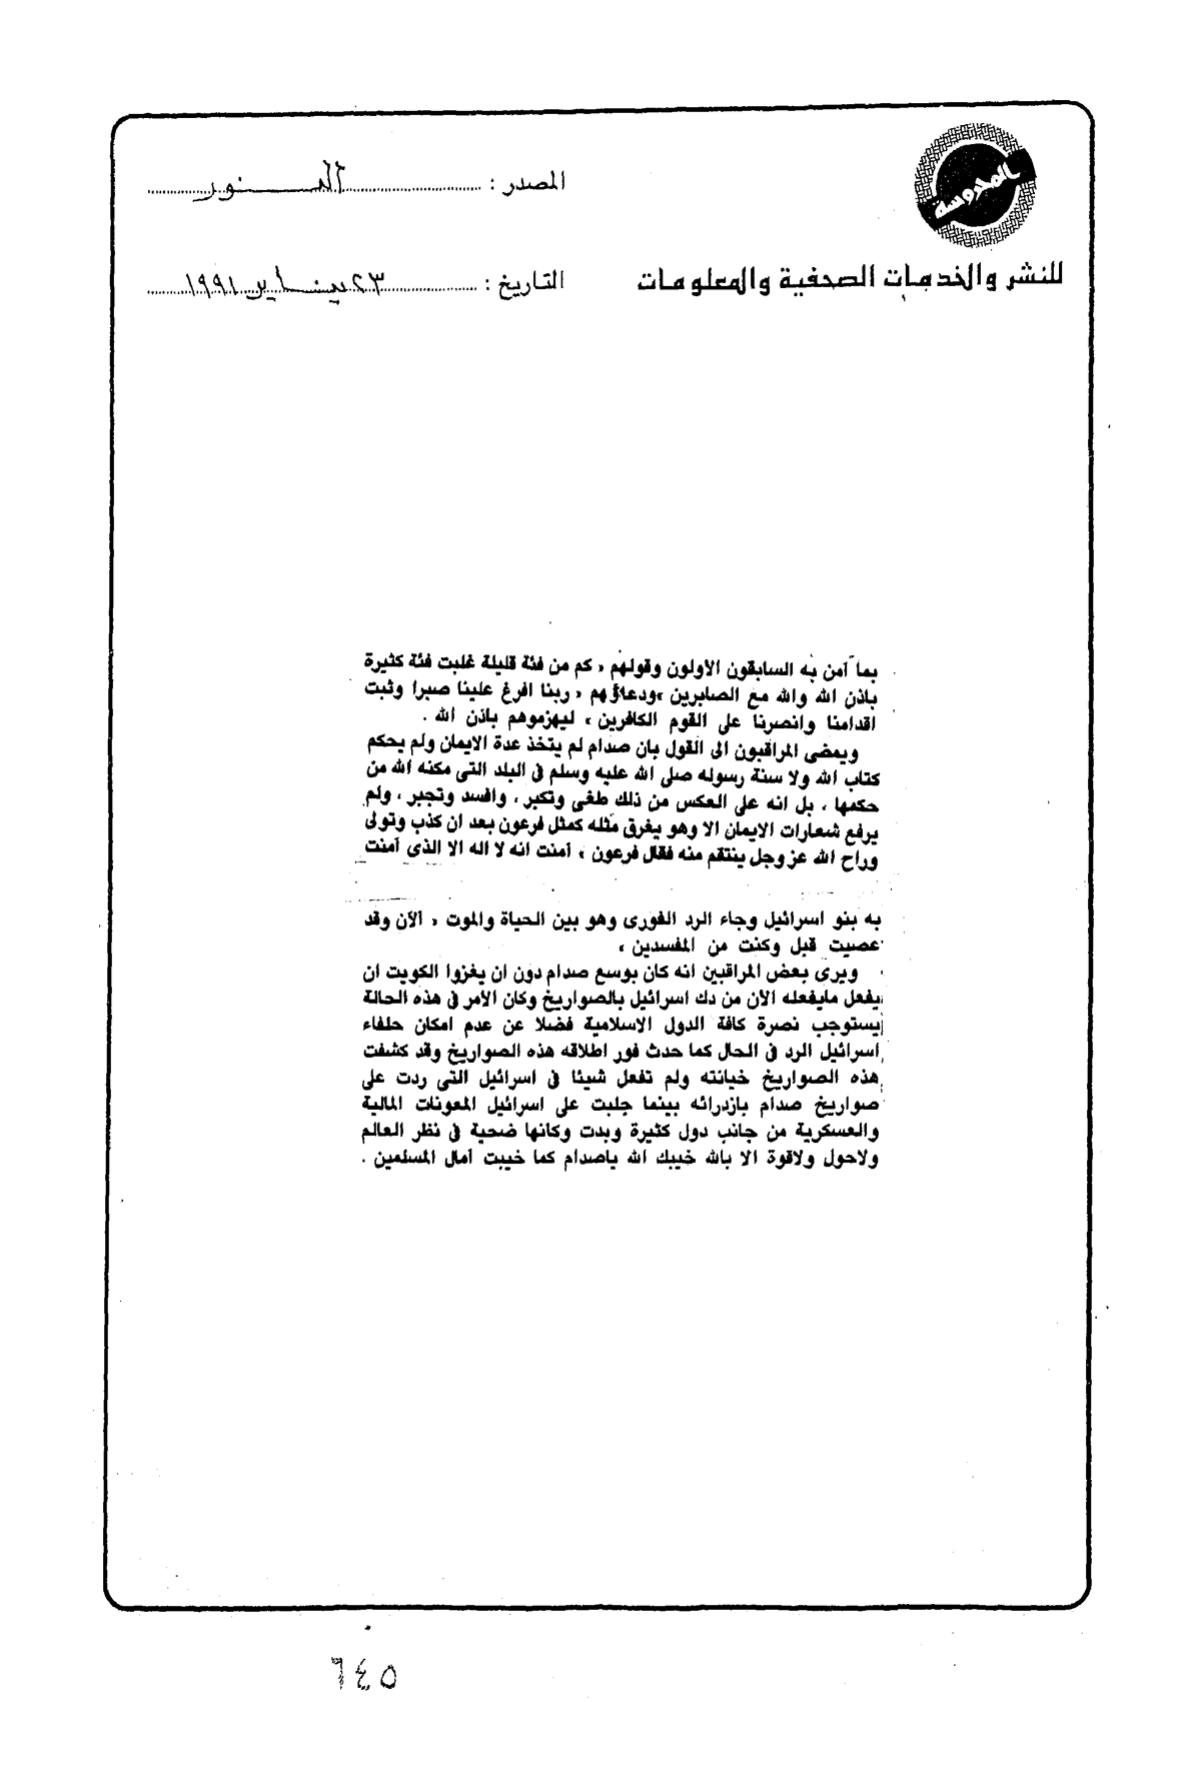 المحروسة
للنشر والخدمات الصحفية والمعلومات
المصدر : النور
التاريخ : ٢٣ يناير ١٩٩١
بما آمن به السابقون الاولون وقولهم « كم من فئة قليلة غلبت فئة كثيرة
باذن الله والله مع الصابرين »ودعاؤهم « ربنا افرغ علينا صبرا وثبت
اقدامنا وانصرنا على القوم الكافرين » ليهزموهم باذن الله .
ويمضى المراقبون الى القول بان صدام لم يتخذ عدة الايمان ولم يحكم
كتاب الله ولا سنة رسوله صلى الله عليه وسلم فى البلد التى مكنه الله من
حكمها ، بل انه على العكس من ذلك طغى وتكبر ، وافسد وتجبر ، ولم
يرفع شعارات الايمان الا وهو يغرق مثله كمثل فرعون بعد ان كذب وتولى
وراح الله عز وجل ينتقم منه فقال فرعون « آمنت انه لا اله الا الذى آمنت
به بنو اسرائيل وجاء الرد الفورى وهو بين الحياة والموت « آلآن وقد
عصيت قبل وكنت من المفسدين »
ويرى بعض المراقبين انه كان بوسع صدام دون ان يغزوا الكويت ان
يفعل مايفعله الآن من دك اسرائيل بالصواريخ وكان الأمر فى هذه الحالة
يستوجب نصرة كافة الدول الاسلامية فضلا عن عدم امكان حلفاء
اسرائيل الرد فى الحال كما حدث فور اطلاقه هذه الصواريخ وقد كشفت
هذه الصواريخ خيانته ولم تفعل شيئا فى اسرائيل التى ردت على
صواريخ صدام بازدرائه بينما جلبت على اسرائيل المعونات المالية
والعسكرية من جانب دول كثيرة وبدت وكانها ضحية فى نظر العالم
ولاحول ولاقوة الا بالله خيبك الله ياصدام كما خيبت آمال المسلمين .
٦٤٥